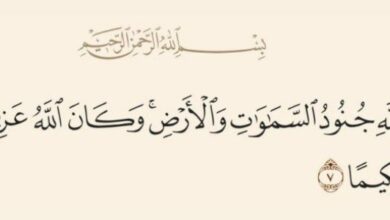 بِسْمِ ٱللَّهِ ٱلرَّحْمَٰنِ ٱلرَّحِيمِ
جُنُودُ ٱلسَّمَٰوَٰتِ وَٱلْأَرْضِ ۚ وَكَانَ ٱللَّهُ
٧